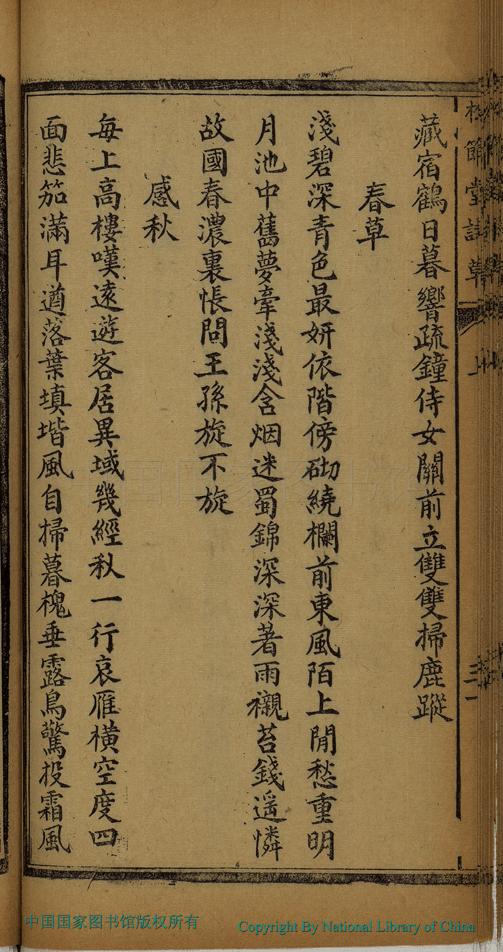 藏宿鶴日暮響疏鐘侍女關前立雙雙掃鹿蹤
春草
淺碧深青色最妍依階傍砌繞欄前東風陌上閒愁重明
月池中舊夢牽淺淺含烟迷蜀錦深深著雨襯苔錢遥憐
故國春濃裏悵問王孫旋不旋
感秋
每上高樓嘆遠遊客居異域幾經秋一行哀雁橫空度四
面悲笳滿耳遒落葉填堦風自掃暮槐垂露鳥驚投霜風
中国国家图书馆版权所有
Copyright By National Library of China